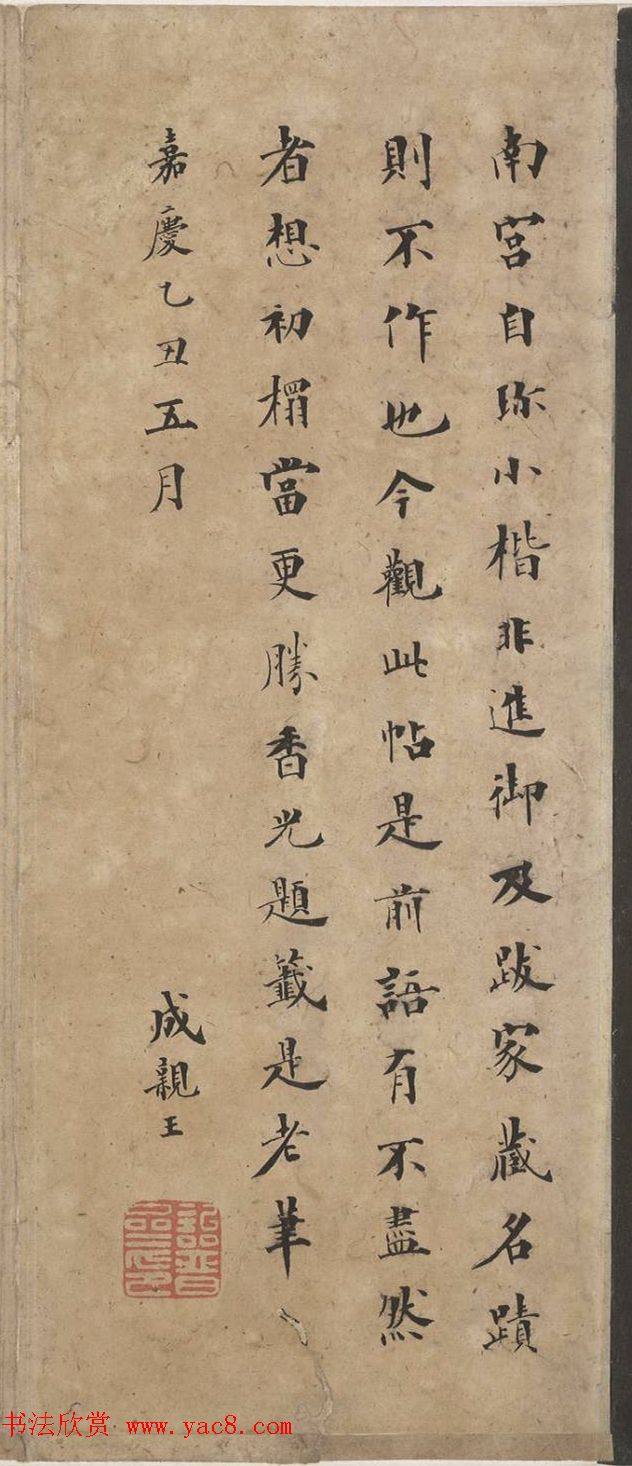 南宫自珎小楷非進御及跋家藏名蹟
則不作也今觀此帖是前語有不盡然
者想初榻當更勝香光題籤是老筆
嘉慶乙丑五月
成親王
书法欣赏 www.yac8.com